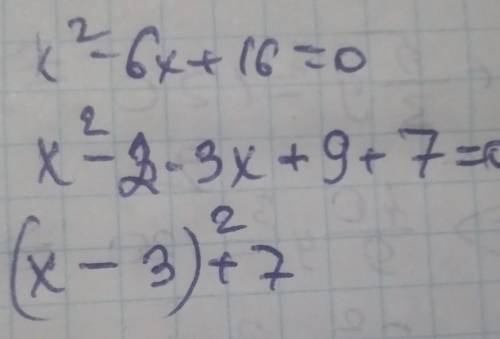 x² - 6x + 16 = 0
x² - 2 · 3x + 9 + 7 = 0
(x - 3)² + 7